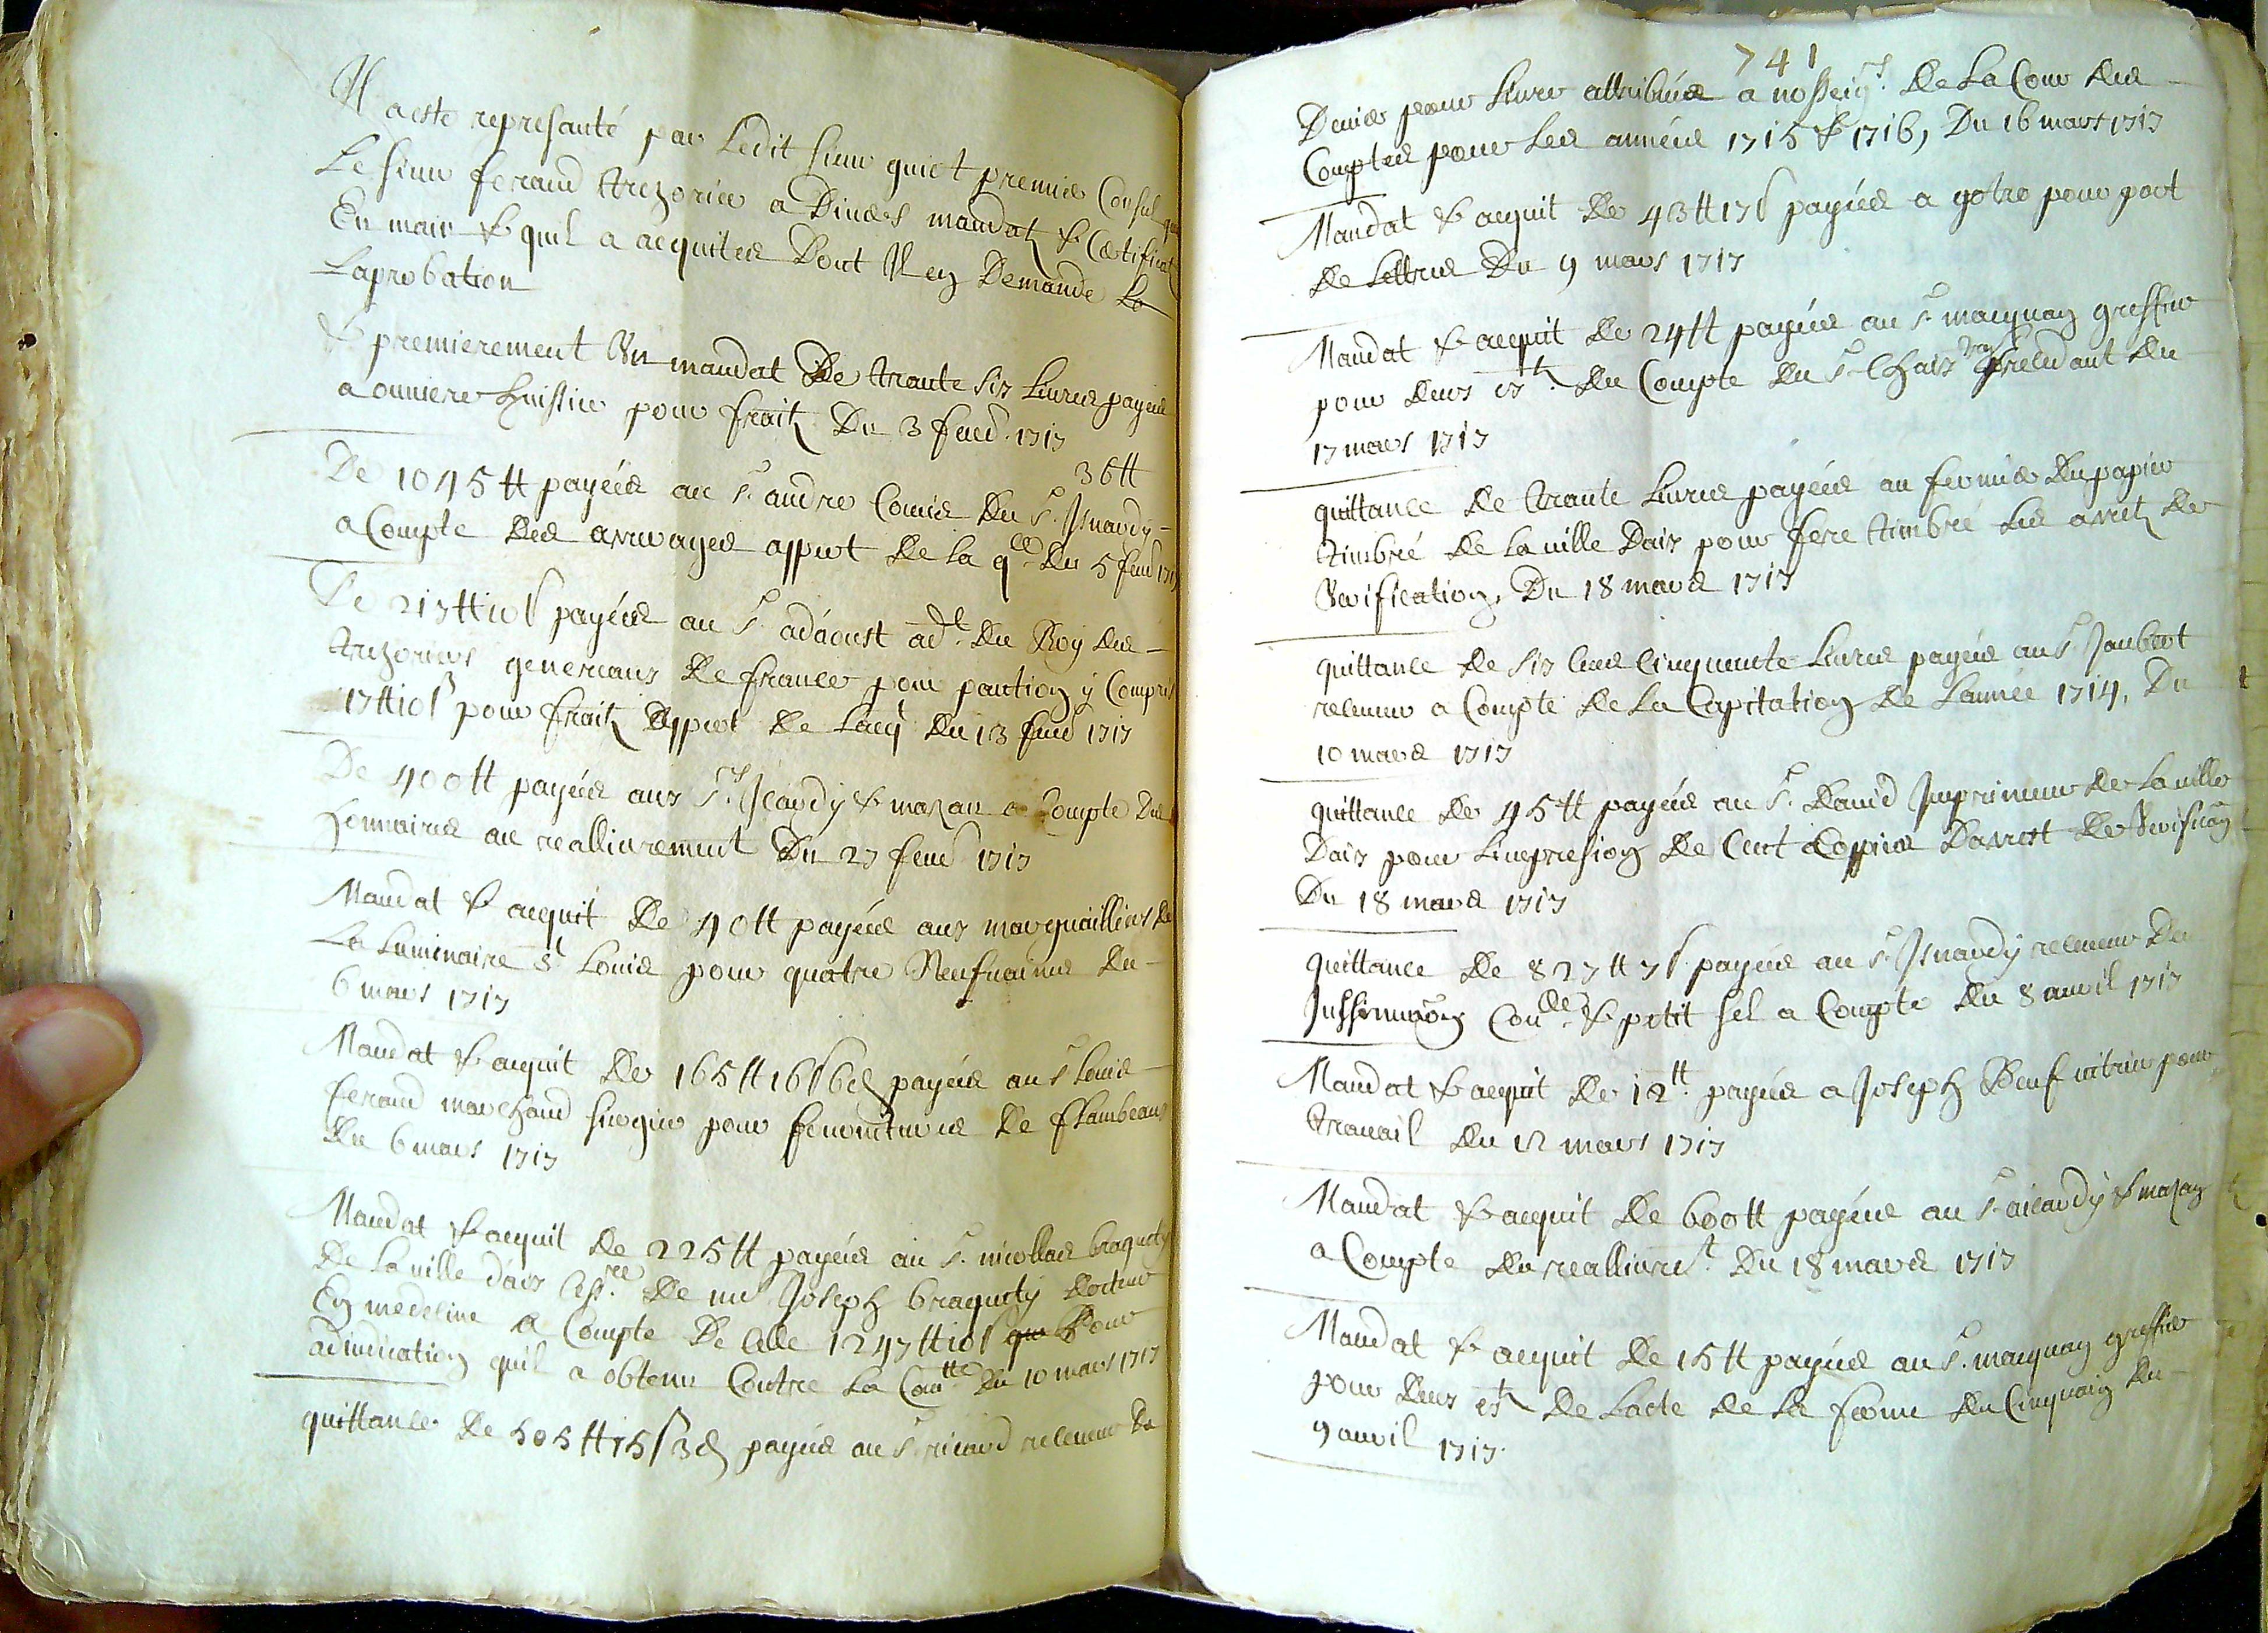 Il a esté represanté par Ledit sieur guiet premier Consul que
Le sieur feraud trezorier a Divers mandatz & Certificatz
En main & quil a acquitees Dont Il en Demande La
Laprobation
& premierement Un mandat De trante six Livres payées
a ouuiere huissier pour fraitz Du 3 feur. 1717
36 tt
De 1045 tt payées au Sr. andre Comis Du Sr. Isnardy
a Compte Des arrerages appert De la qce Du 5 feur 1717
De 217 tt 10 s payées au Sr. adaoust adt. Du Roy Des
trezoriers generaux De france pour pantion y Compris
17 tt 10 s pour fraitz Appert De Lacq Du 13 feur 1717
De 400 tt payées aux Srs. Icardy & mazan a Compte Des
honnaires au reallivrement Du 27 feur 1717
Mandat & acquit De 40 tt payées aux marguailliers De
La Luminaire St Louis pour quatre Neufuaines Du
6 mars 1717
Mandat & acquit De 165 tt 16 s 6 d payées au Sr Louis
feraud marchand sirogier pour fournitures De flambeaux
Du 6 mars 1717
Mandat & acquit De 225 tt payées au Sr. nicollas braquety
De La ville d'aix Cess.re De me Joseph braquety Docteur
En medeline A Compte De Celle 1247 tt 10 s Pour
adiudication quil a obtenu Contre La Comtté Du 10 mars 1717
quittance De 505 tt 15 s 3 d payées au Sr ricard receveur Du
741
Denier pour Livre attribuées a nosseigrs. De La Cour Des
Comptes pour Les années 1715 & 1716, Du 16 mars 1717
Mandat & acquit De 43 tt 17 s payées a gotro pour port
De Lettres Du 9 mars 1717
Mandat & acquit De 24 tt payées au Sr maeynoy greffier
pour Deux extz. Du Compte Du Sr Chaix Du
17 mars 1717
quittance De trante Livres payées au fermier Du papier
timbré De La ville Daix pour fere timbré Les arretz De
Verification, Du 18 mars 1717
quittance De six Cens Cinquante Livres payées au Sr Jaubert
receveur a Compte De La Capitation De Lannée 1714, Du
10 mars 1717
quittance De 45 tt payées au Sr. David Imprimeur De La ville
Daix pour Limpresion De Cent Coppies Darrest De Verifica͠on
Du 18 mars 1717
quittance De 827 tt 7 s payées au Sr. Isnardy receveur Des
Inssinua͠on Conlle & petit sel a Compte Du 8 auril 1717
Mandat & acquit De 12 tt. payées a Joseph Beuf vitrier pour
trauail Du 12 mars 1717
Mandat & acquit De 600 tt payées au Sr aicardy & mazan
a Compte Du reallivret. Du 18 mars 1717
Mandat & acquit De 15 tt payées au Sr. maeynoy greffier
pour Deux extz De Lacte De La ferme Du Cinquain Du
9 auril 1717.